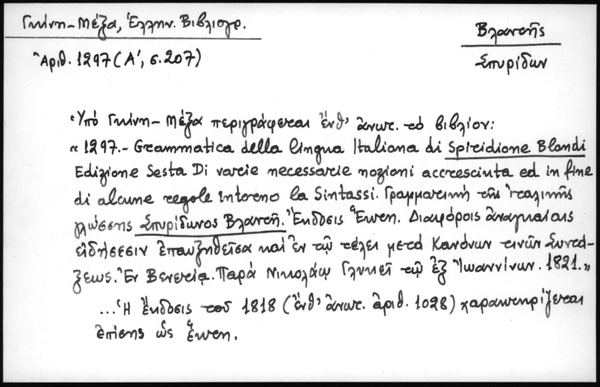 Γκίνη-Μέξα, Ἑλλην. Βιβλιογρ.
Βλαντῆς
Σπυρίδων
Ἀριθ. 1297 (Α', σ. 207)
Ὑπό Γκίνη-Μέξα περιγράφεται ἐνθ' ἀνωτ. τό βιβλίον:
«1297.- Grammatica della lingua Italiana di Spiridione Blandi
Edizione Sesta Di varie necessarie nozioni accresciuta ed in fine
di alcune regole intorno la Sintassi. Γραμματική τῆς Ἰταλικῆς
γλώσσης Σπυρίδωνος Βλαντῆ. Ἔκδοσις Ἕκτη. Διαφόροις ἀναγκαίαις
εἰδήσεσιν ἐπαυξηθεῖσα καί ἐν τῷ τέλει μετά Κανόνων τινῶν Συντά-
ξεως. Ἐν Βενετίᾳ. Παρά Νικολάῳ Γλυκεῖ τῷ ἐξ Ἰωαννίνων. 1821.»
...Ἡ ἔκδοσις τοῦ 1818 (ἐνθ' ἀνωτ. ἀριθ. 1028) χαρακτηρίζεται
ἐπίσης ὡς ἕκτη.